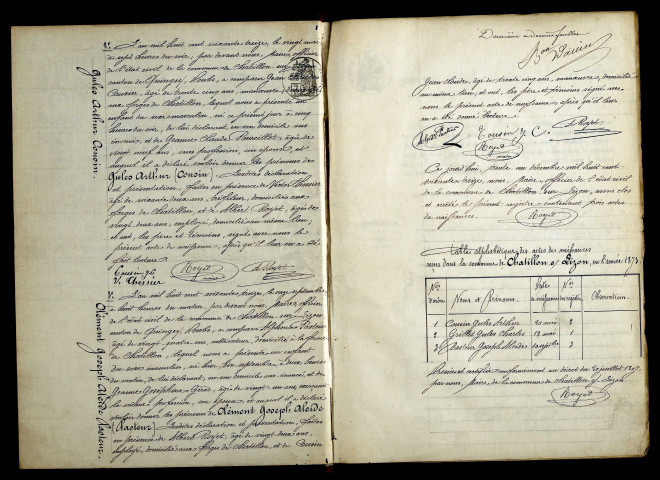 1.
L'an mil huit cent soixante treize, le vingt mai
à sept heures du soir, par devant nous, maire, officier
de l'état civil de la commune de Chatillon sur Lizon
canton de Quingey, Doubs, a comparu Jean Claude
Cousin, âgé de trente cinq ans, manœuvre, domicilié
aux forges de Chatillon, lequel nous a présenté un
enfant du sexe masculin, né ce présent jour à cinq
heures du soir, de lui déclarant, en son domicile sus
énoncé, et de Jeanne Claude, âgée de
vingt neuf ans, sans profession, son épouse, et
auquel il a déclaré vouloir donner les prénoms de
Gules Arthur Cousin. Lesdites déclaration
et présentation, faites en présence de Victor Thessier
âgé de soixante deux ans, tréfileur, domicilié aux
forges de Chatillon, et de Albert Royet, âgé de
vingt deux ans, employé, domicilié au même lieu;
et ont, les père et témoins, signé avec nous le
présent acte de naissance, après qu'il leur en a été
fait lecture
Cousin J C
V. Thessier
Royet
A Royet
Gules Arthur Cousin.
3.
L'an mil huit cent soixante treize, le onze septembre
à huit heures du matin, par devant nous, Maire, officier
de l'état civil de la commune de Chatillon sur Lizon
canton de Quingey, Doubs, a comparu Alphonse Pasteur
âgé de vingt quatre ans, cultivateur, domicilié à la ferme
de Chatillon, lequel nous a présenté un enfant
du sexe masculin, né hier dix septembre, à deux heures
du matin, de lui déclarant, en son domicile sus énoncé, et de
Jeanne Joséphine Girod, âgée de vingt un ans, exerçant
la même profession, son épouse, et auquel il a déclaré
vouloir donner les prénoms de Clément Joseph Aloïde
(Pasteur) Lesdites déclaration et présentation, faites
en présence de Albert Royet, âgé de vingt deux ans,
employé, domicilié aux forges de Chatillon, et de Cousin
Clément Joseph Aloïde Pasteur.
Deuxième & Dernière feuillet
Jean Claude, âgé de trente cinq ans, manœuvre, domicilié
au même lieu, et ont, les père et témoins signé avec
nous le présent acte de naissance, après qu'il leur
en a été donné lecture
Alphse Pasteur
Cousin J C.
A Royet
Royet
Ce jourd'hui, trente un décembre mil huit cent
soixante treize, nous, maire, officier de l'état civil
de la commune de Chatillon sur Lizon, avons clos
et arrêté le présent registre contenant trois actes
de naissances.
Royet
Table alphabétique des actes de naissances
reçus dans la commune de Chatillon s/ Lizon, en l'année 1873.
Nos d'ordre
Noms & Prénoms.
Date
Nos
Observations.
1 Cousin Gules Arthur 20 mai 1
2 Grillet Gules Charles 2
3 Pasteur Joseph Aloïde 10 septbre 3
Dressée et certifiée conformément au décret du 20 juillet 1807.
par nous, Maire, de la commune de Chatillon s/ Lizon
Royet